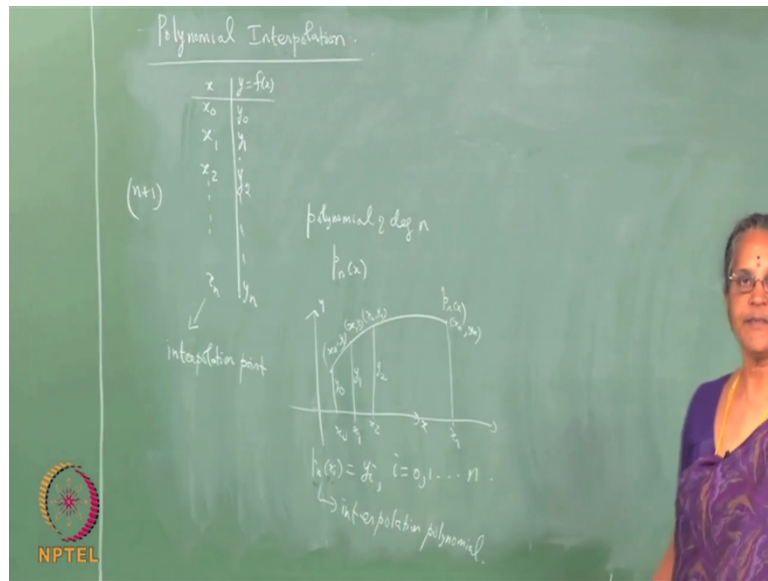 Polynomial Interpolation.
x y=f(x)
x0 y0
x1 y1
x2 y2
(n+1)
xn yn
interpolation point
polynomial of deg n
pn(x)
y
pn(x)
(x0,y0) (x1,y1) (x2,y2) (xn,yn)
y0 y1 y2
x0 x1 x2 x xn
pn(xi) = yi, i=0,1 .... n.
interpolation polynomial.
NPTEL